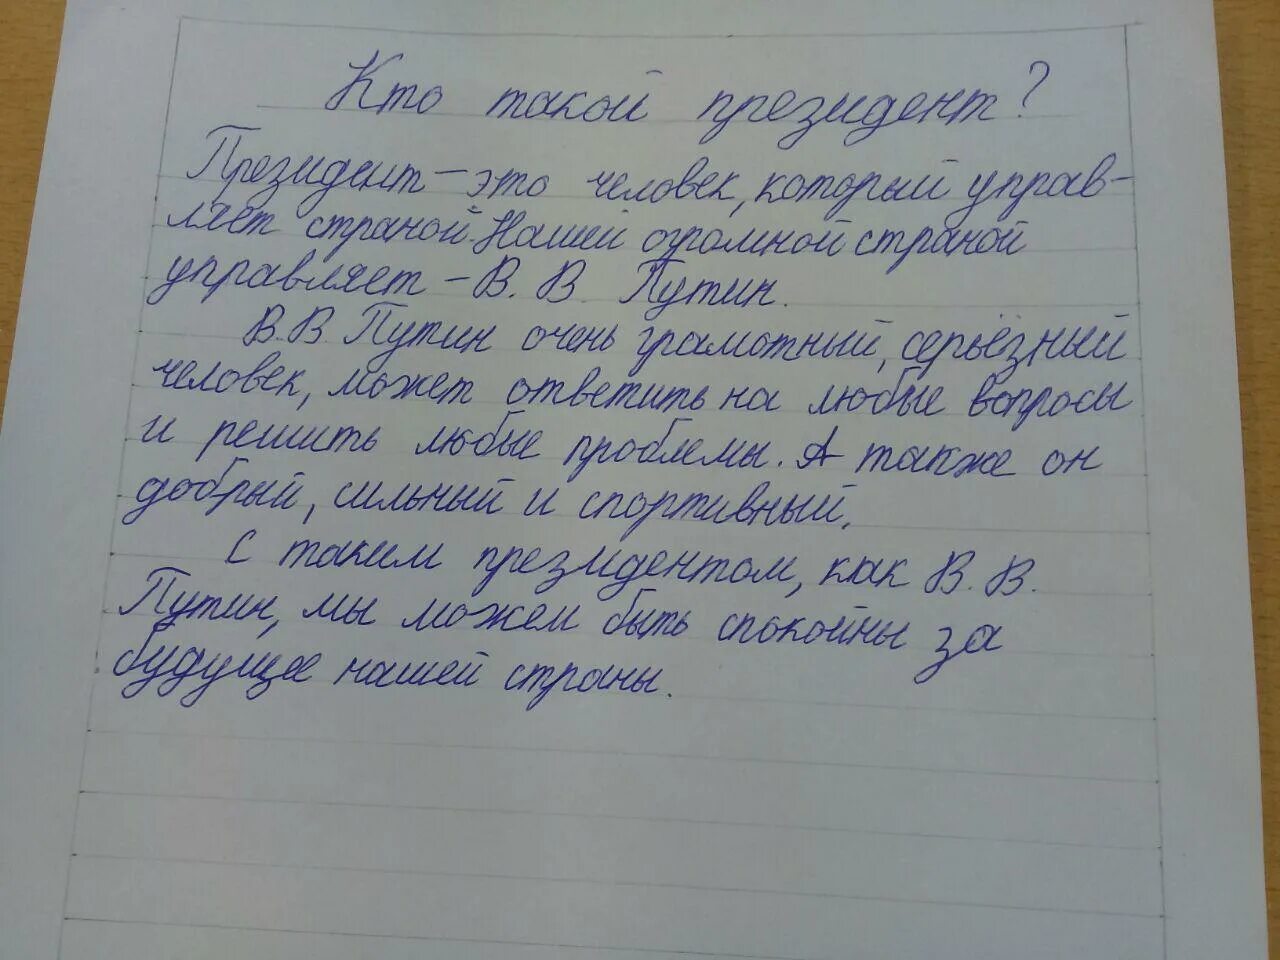 Кто такой президент?
Президент – это человек, который управ-
ляет страной. Нашей огромной страной
управляет – В. В. Путин.
В. В. Путин очень грамотный, серьёзный
человек, может ответить на любые вопросы
и решить любые проблемы. А также он
добрый, сильный и спортивный.
С таким президентом, как В. В.
Путин, мы можем быть спокойны за
будущее нашей страны.